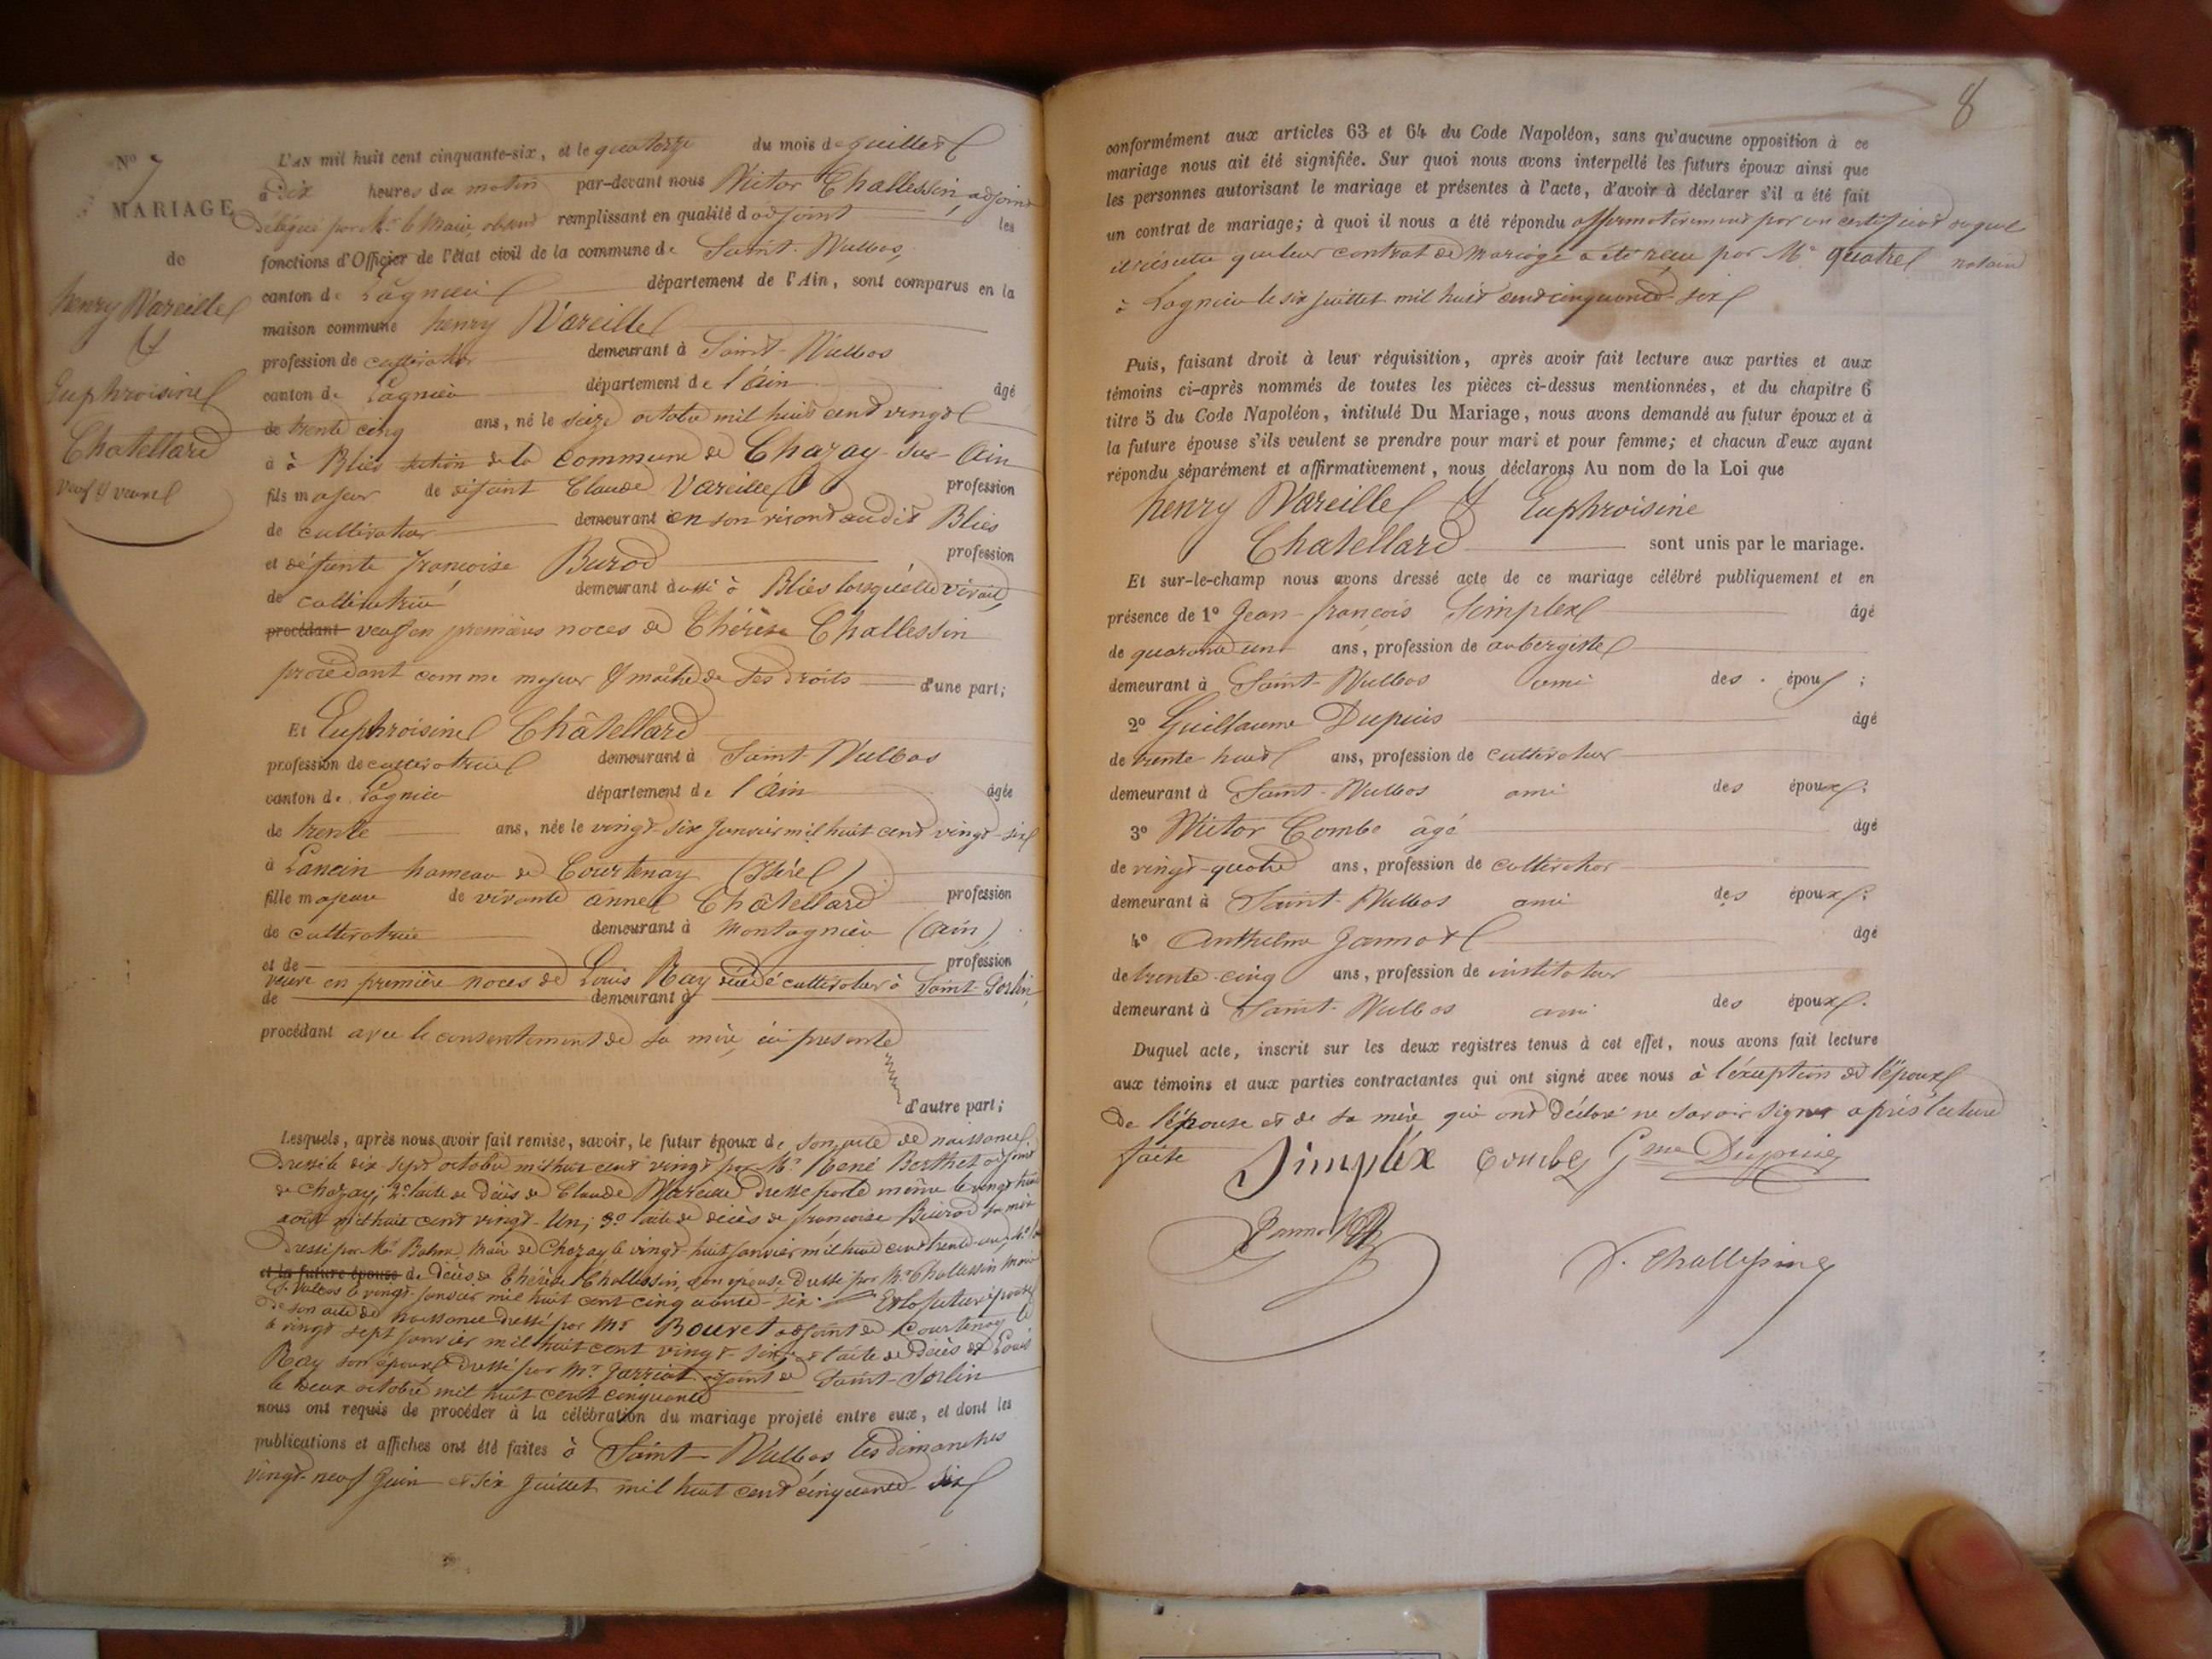 N° 7
MARIAGE
de
henry Vareille
&
Euphroisine
Chatellard
veuf & veuve
L'AN mil huit cent cinquante-six, et le quatorze du mois de juillet
à dix heures du matin par-devant nous Victor Challessin, adjoint
délégué par Mr le Maire, absent remplissant en qualité d'adjoint les
fonctions d'Officier de l'état civil de la commune de Saint-Vulbas,
canton de Lagnieu département de l'Ain, sont comparus en la
maison commune henry Vareille
profession de cultivateur demeurant à Saint-Vulbas
canton de Lagnieu département de l'Ain âgé
de trente cinq ans, né le seize octobre mil huit cent vingt
à à Blies section de la commune de Chazay-sur-Ain
fils majeur de défunt Claude Vareille profession
de cultivateur demeurant en son vivant audit Blies
et défunte françoise Burod profession
de cultivatrice demeurant aussi à Blies lorsqu'elle vivait,
procédant veuf en premières noces de Thérèse Challessin
procédant comme majeur & maître de ses droits d'une part;
Et Euphroisine Châtellard
profession de cultivatrice demeurant à Saint-Vulbas
canton de Lagnieu département de l'Ain âgée
de trente ans, née le vingt-six janvier mil huit cent vingt-six
à Lancin hameau de Courtenay (Isère)
fille majeure de vivante anne Châtellard profession
de cultivatrice demeurant à Montagnieu (Ain)
et de profession
veuve en première noces de Louis Ray décédé cultivateur à Saint-Sorlin,
de demeurant à
procédant avec le consentement de sa mère, ici présente
d'autre part;
Lesquels, après nous avoir fait remise, savoir, le futur époux de son acte de naissance
dressé le dix sept octobre mil huit cent vingt par Mr René Berthet adjoint
de Chazay; 2° l'acte de décès de Claude Vareille dressé par le même le vingt huit
août mil huit cent vingt-un; 3° l'acte de décès de françoise Burod sa mère
dressé par Mr Maire de Chazay le vingt-huit janvier mil huit cent trente un, 4°
et la future épouse de décès de Thérèse Challessin, son épouse dressé par Mr Challessin Maire
St Vulbas le vingt-janvier mil huit cent cinquante-six. Et la future épouse
de son acte de naissance dressé par Mr Bouvet adjoint de Courtenay le
vingt sept janvier mil huit cent vingt-six, & l'acte de décès de Louis
Ray son époux dressé par Mr Jarriat adjoint de Saint-Sorlin
le deux octobre mil huit cent cinquante
nous ont requis de procéder à la célébration du mariage projeté entre eux, et dont les
publications et affiches ont été faites à Saint-Vulbas les dimanches
vingt-neuf Juin et six Juillet mil huit cent cinquante-six
8
conformément aux articles 63 et 64 du Code Napoléon, sans qu'aucune opposition à ce
mariage nous ait été signifiée. Sur quoi nous avons interpellé les futurs époux ainsi que
les personnes autorisant le mariage et présentes à l'acte, d'avoir à déclarer s'il a été fait
un contrat de mariage; à quoi il nous a été répondu affirmativement par un certificat duquel
il résulte que leur contrat de mariage a été reçu par Me quatre notaire
à Lagnieu le six juillet mil huit cent cinquante-six
Puis, faisant droit à leur réquisition, après avoir fait lecture aux parties et aux
témoins ci-après nommés de toutes les pièces ci-dessus mentionnées, et du chapitre 6
titre 5 du Code Napoléon, intitulé Du Mariage, nous avons demandé au futur époux et à
la future épouse s'ils veulent se prendre pour mari et pour femme; et chacun d'eux ayant
répondu séparément et affirmativement, nous déclarons Au nom de la Loi que
henry Vareille & Euphroisine
Chatellard sont unis par le mariage.
Et sur-le-champ nous avons dressé acte de ce mariage célébré publiquement et en
présence de 1° Jean-françois Simplex âgé
de quarante un ans, profession de aubergiste
demeurant à Saint-Vulbas ami des époux;
2° Guillaume Dupuis âgé
de trente huit ans, profession de cultivateur
demeurant à Saint-Vulbas ami des époux;
3° Victor Combe âgé âgé
de vingt-quatre ans, profession de cultivateur
demeurant à Saint-Vulbas ami des époux;
4° Anthelme Jannot âgé
de trente-cinq ans, profession de instituteur
demeurant à Saint-Vulbas ami des époux.
Duquel acte, inscrit sur les deux registres tenus à cet effet, nous avons fait lecture
aux témoins et aux parties contractantes qui ont signé avec nous à l'éxception de l'époux
de l'épouse et de sa mère qui ont déclaré ne savoir signer après lecture
faite Simplex Combe Gme Dupuis
Jannot
V. Challessin